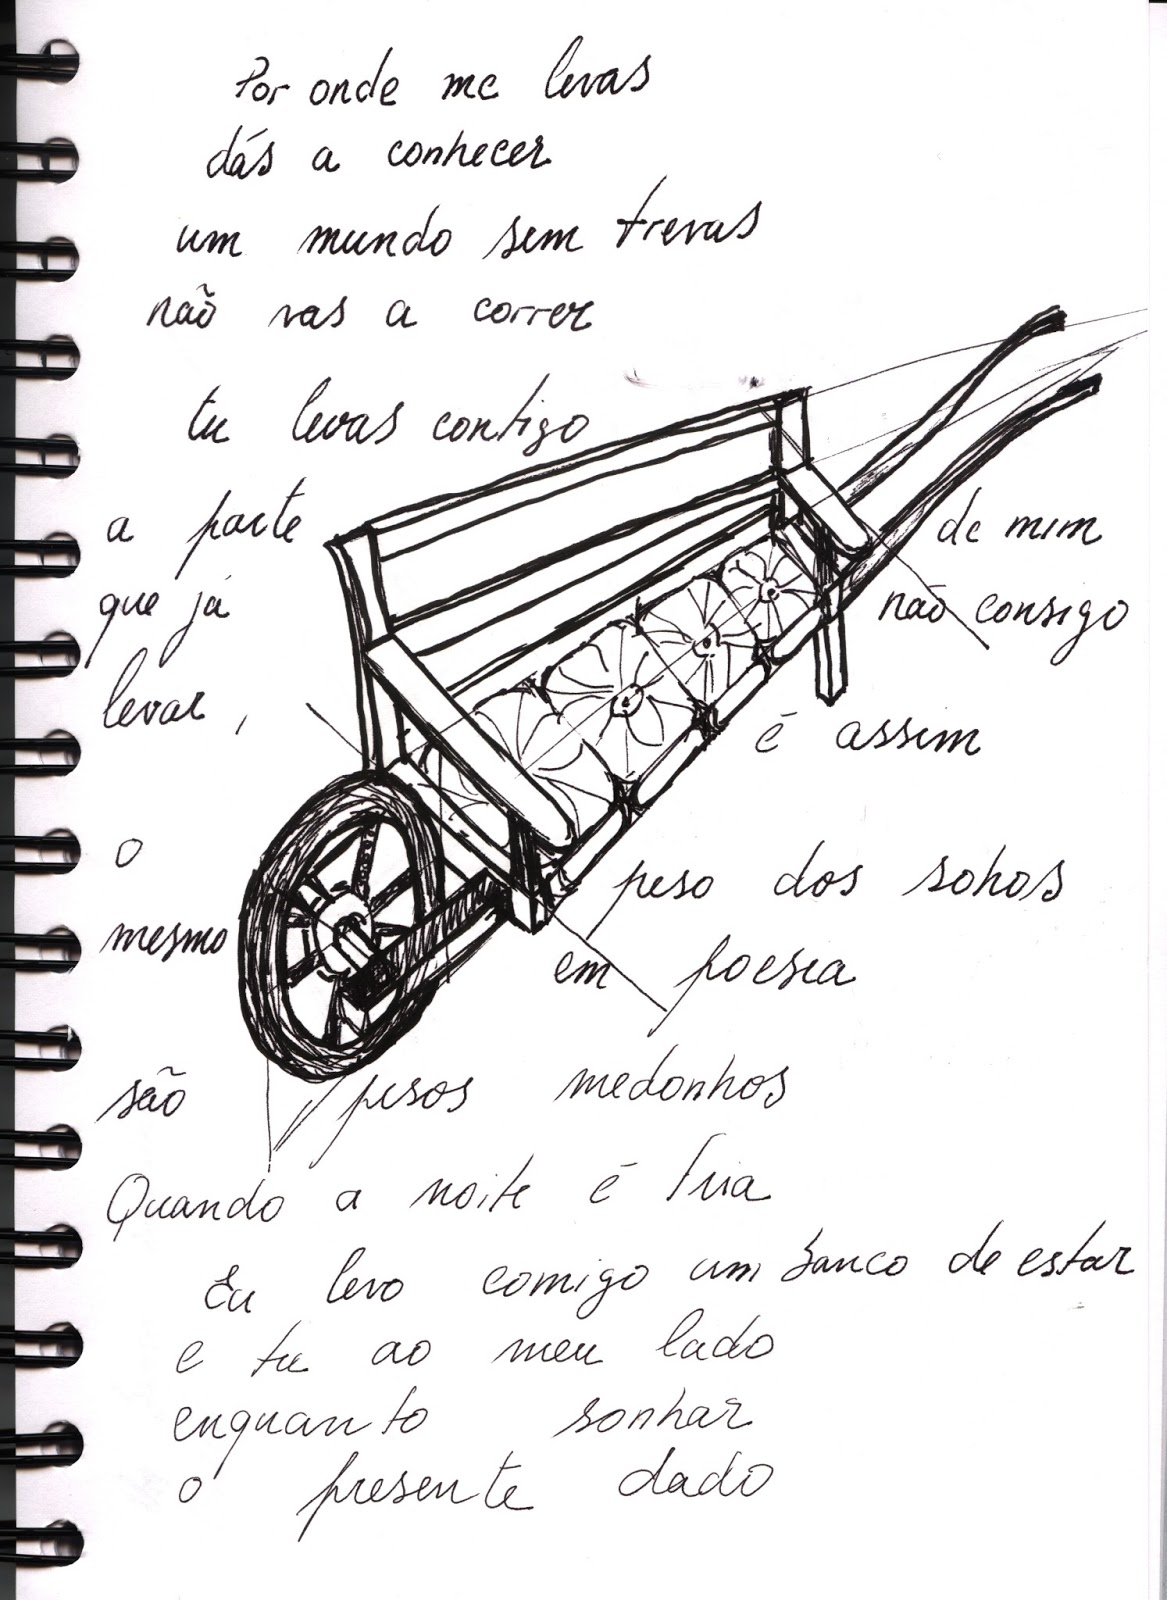 Por onde me levas
dás a conhecer
um mundo sem trevas
não vas a correr
tu levas contigo
a parte de mim
que já não consigo
levar, é assim
o peso dos sohos
mesmo em poesia
são pesos medonhos
Quando a noite é fria
Eu levo comigo um banco de estar
e tu ao meu lado
enquanto sonhar
o presente dado